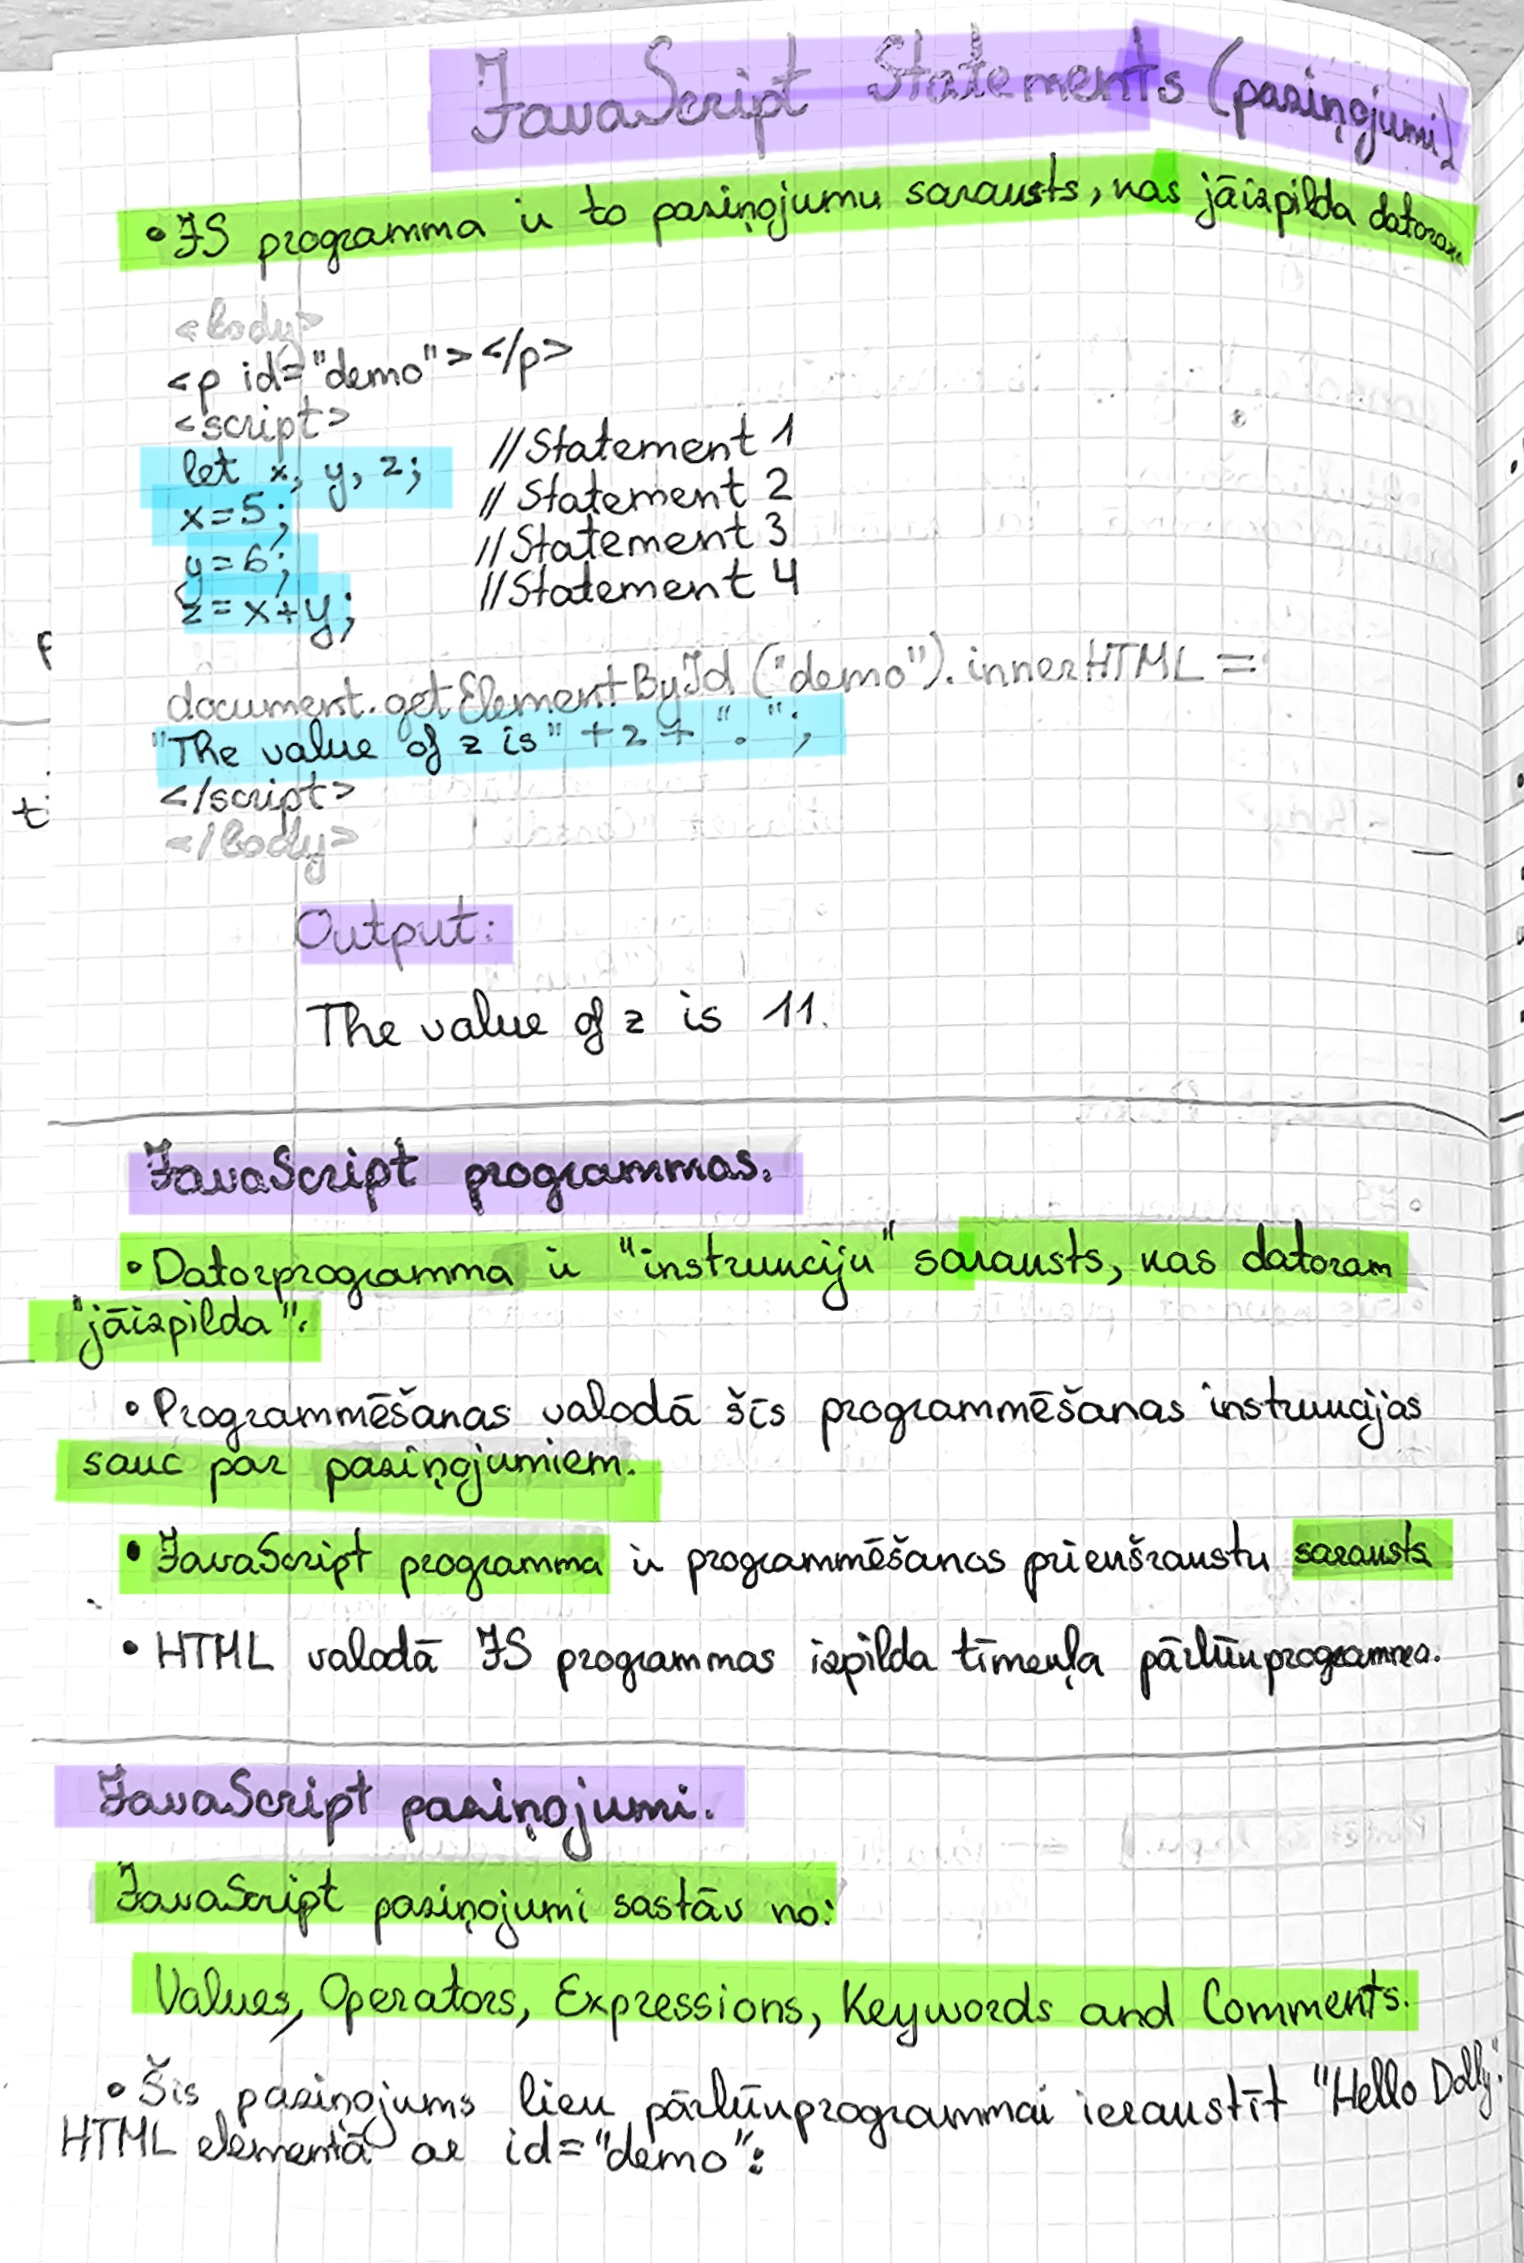 JavaScript Statements (paziņojumi)
• JS programma ir to paziņojumu saraksts, kas jāizpilda datoram
<body>
<p id="demo"></p>
<script>
let x, y, z; //Statement 1
x=5; //Statement 2
y=6; //Statement 3
z=x+y; //Statement 4
document.getElementById("demo").innerHTML =
"The value of z is" + z + ".";
</script>
</body>
Output:
The value of z is 11.
JavaScript programmas.
• Datorprogramma ir "instrukciju" saraksts, kas datoram
"jāizpilda".
• Programmēšanas valodā šīs programmēšanas instrukcijas
sauc par paziņojumiem.
• JavaScript programma ir programmēšanas priekšrakstu saraksts
• HTML valodā JS programmas izpilda tīmekļa pārlūkprogrammas.
JavaScript paziņojumi.
JavaScript paziņojumi sastāv no:
Values, Operators, Expressions, Keywords and Comments.
• Šis paziņojums liek pārlūkprogrammai ierakstīt "Hello Dolly."
HTML elementā ar id="demo":